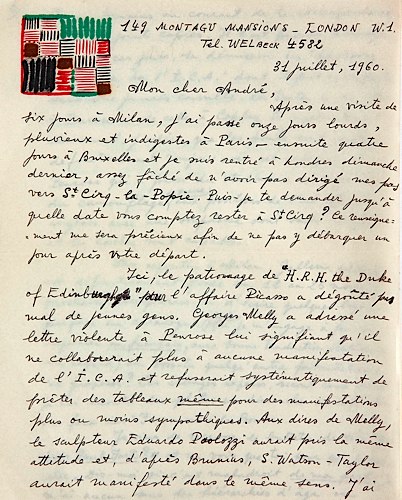 149 MONTAGU MANSIONS - LONDON W.1.
Tel. WELBECK 4582
31 juillet, 1960.
Mon cher André,
Après une visite de
six jours à Milan, j'ai passé onze jours lourds,
pluvieux et indigestes à Paris - ensuite quatre
jours à Bruxelles et je suis rentré à Londres dimanche
dernier, assez fâché de n'avoir pas dirigé mes pas
vers St Cirq-la-Popie. Puis-je te demander jusqu'à
quelle date vous comptez rester à St Cirq? Ce renseigne-
-ment me sera précieux afin de ne pas y débarquer un
jour après votre départ.
Ici, le patronage de "H.R.H. the Duke
of Edinburgh" pour l'affaire Picasso a dégoûté pas
mal de jeunes gens. Georges Melly a adressé une
lettre violente à Penrose lui signifiant qu'il
ne collaborerait plus à aucune manifestation
de l'I.C.A. et refuserait systématiquement de
prêter des tableaux même pour des manifestations
plus ou moins sympathiques. Aux dires de Melly,
le sculpteur Eduardo Paolozzi aurait pris la même
attitude et, d'après Brunius, S. Watson-Taylor
aurait manifesté dans le même sens. J'ai